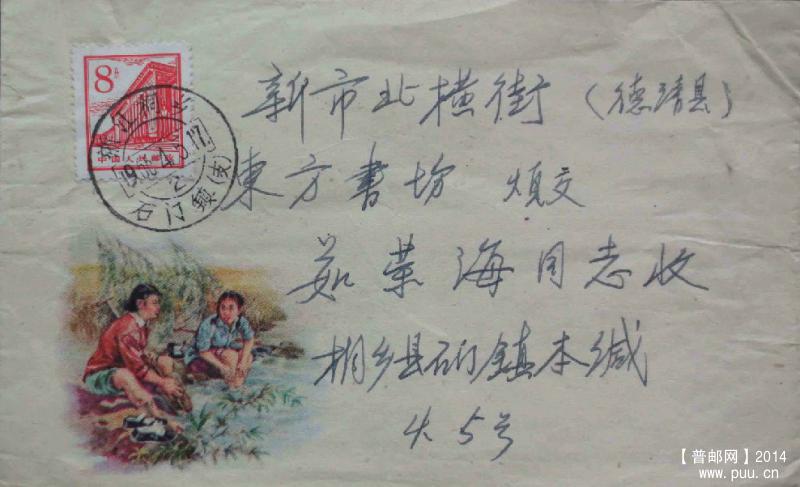 8分
浙江桐乡
石门镇(支)
新市北横街(德清县)
東方書坊 烦交
茹荣海同志收
桐乡县石门镇本缄
4.5号
【普邮网】2014
www.puu.cn